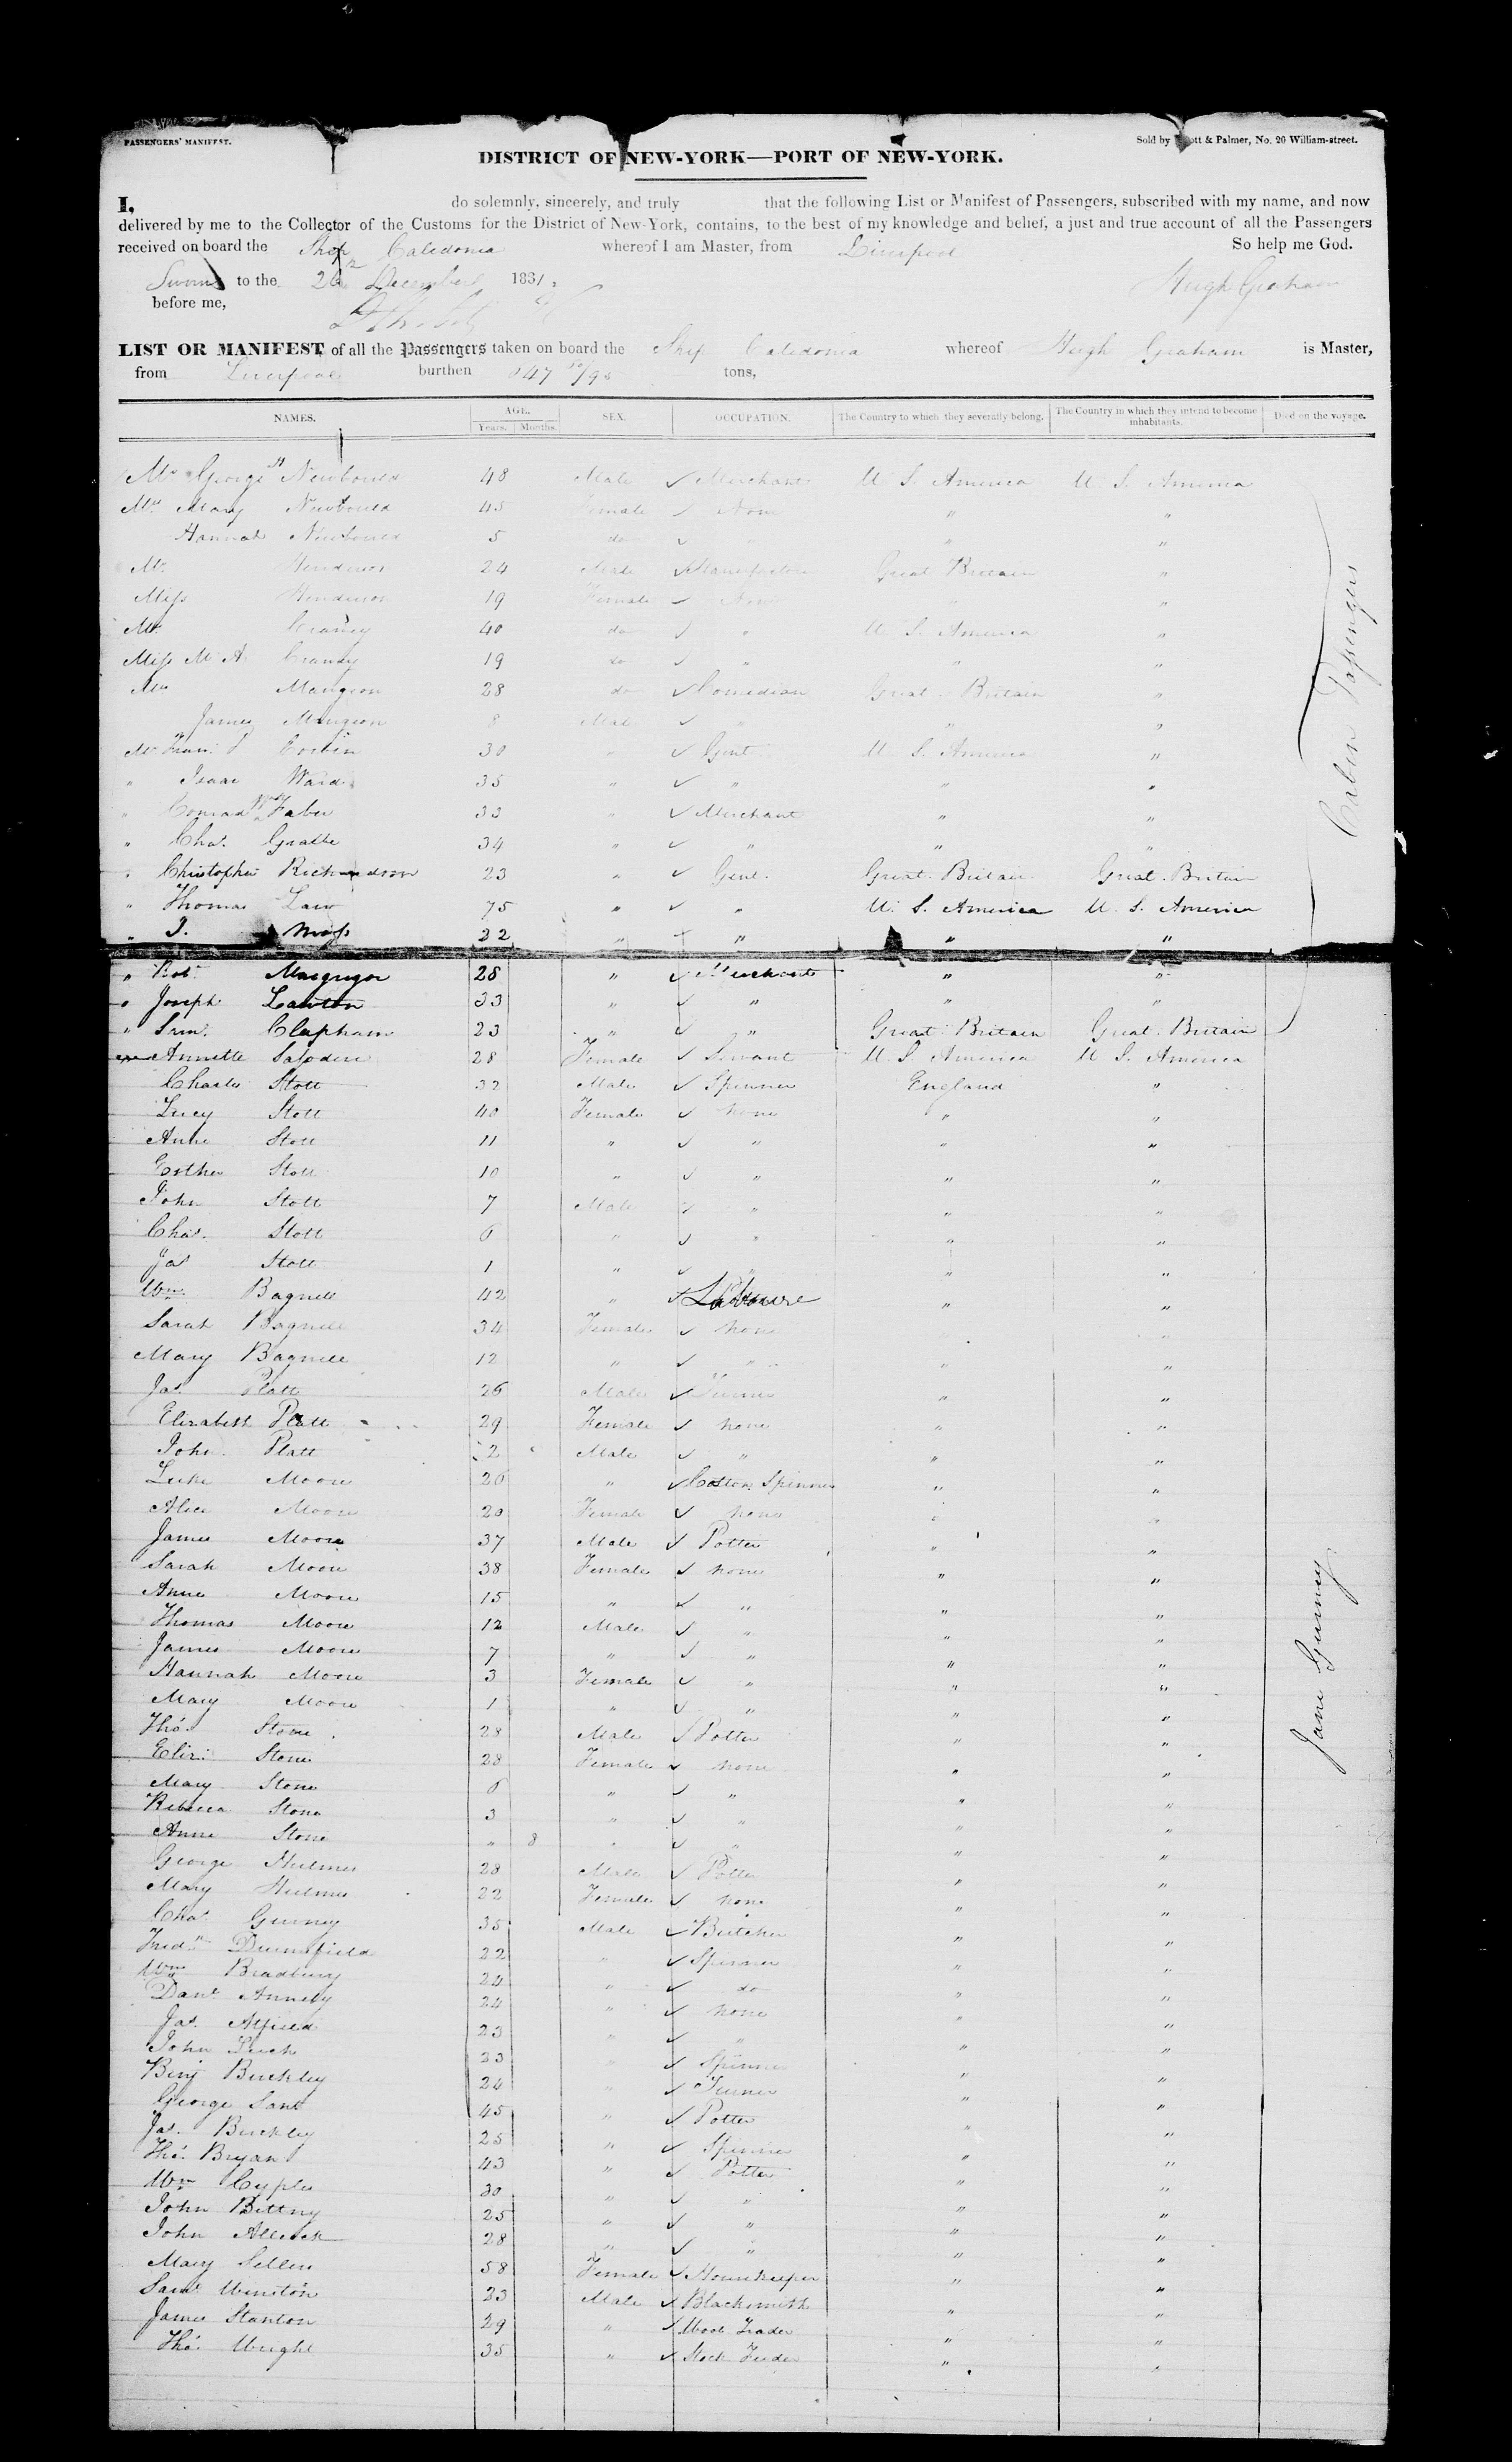 PASSENGERS' MANIFEST.
Sold by & Palmer, No. 20 William-street.
DISTRICT OF NEW-YORK—PORT OF NEW-YORK.
I, do solemnly, sincerely, and truly that the following List or Manifest of Passengers, subscribed with my name, and now
delivered by me to the Collector of the Customs for the District of New-York, contains, to the best of my knowledge and belief, a just and true account of all the Passengers
received on board the Ship Caledonia whereof I am Master, from Liverpool So help me God.
Sworn to the 26 December 1831. Hugh Graham
before me,
LIST OR MANIFEST of all the Passengers taken on board the Ship Caledonia whereof Hugh Graham is Master,
from Liverpool burthen 647 /95 tons,
NAMES. AGE. SEX. OCCUPATION. The Country to which they severally belong. The Country in which they intend to become inhabitants. Died on the voyage.
Years. Months.
Mr George Newbould 48 Male ✓ Merchant U. S. America U. S. America
Mrs Mary Newbould 45 Female ✓ None " "
Hannah Newbould 5 do ✓ " " "
Mr Henderson 24 Male ✓ Great Britain "
Miss Henderson 19 Female ✓ None " "
40 do ✓ " U. S. America "
Miss M A 19 do ✓ " " "
Mrs Mangeon 28 do ✓ Comedian Great Britain "
James Mangeon 8 Male ✓ " " "
Mr Corbin 30 " ✓ Gent U. S. America "
" Isaac Ward 35 " ✓ " " "
" Conrad Faber 33 " ✓ Merchant " "
" Chas. 34 " ✓ " " "
" Christopher Richardson 23 " ✓ Gent. Great Britain Great Britain
" Thomas Law 75 " ✓ " U. S. America U. S. America
" Moss 32 " ✓ " " "
" Rob. Macgregor 28 " ✓ Merchant " "
" Joseph Lawton 33 " ✓ " " "
" Sam. Clapham 23 " ✓ " Great Britain Great Britain
Cabin Passengers
Annette 28 Female ✓ Servant U. S. America U. S. America
Charles Stott 32 Male ✓ Spinner England "
Lucy Stott 40 Female ✓ none " "
Anne Stott 11 " ✓ " " "
Esther Stott 10 " ✓ " " "
John Stott 7 Male ✓ " " "
Chas. Stott 6 " ✓ " " "
Jas Stott 1 " ✓ " " "
Wm Bagnell 42 " ✓ " "
Sarah Bagnell 34 Female ✓ none " "
Mary Bagnell 12 " ✓ " " "
Jas. Platt 26 Male ✓ Turner " "
Elizabeth Platt 29 Female ✓ none " "
John Platt 2 Male ✓ " " "
Luke Moore 26 " ✓ Cotton Spinner " "
Alice Moore 20 Female ✓ none " "
James Moore 37 Male ✓ Potter " "
Sarah Moore 38 Female ✓ none " "
Anne Moore 15 " ✓ " " "
Thomas Moore 12 Male ✓ " " "
James Moore 7 " ✓ " " "
Hannah Moore 3 Female ✓ " " "
Mary Moore 1 " ✓ " " "
Thos. Stone 28 Male ✓ Potter " "
Eliz. Stone 28 Female ✓ none " "
Mary Stone 6 " ✓ " " "
Rebecca Stone 3 " ✓ " " "
Anne Stone " 8 " ✓ " " "
George Hulmes 28 Male ✓ Potter " "
Mary Hulmes 22 Female ✓ none " "
Chas. Gurney 35 Male ✓ Butcher " "
Jane Gurney
Fredk 22 " ✓ Spinner " "
Wm Bradbury 24 " ✓ do " "
Danl 24 " ✓ none " "
Jas. 23 " ✓ " " "
John Leech 23 " ✓ Spinner " "
Benj Buckley 24 " ✓ Turner " "
George 45 " ✓ Potter " "
Jas. Buckley 25 " ✓ Spinner " "
Thos. Bryan 43 " ✓ Potter " "
Wm Cyples 30 " ✓ " " "
John 25 " ✓ " " "
John Allcock 28 " ✓ " " "
Mary Sellers 58 Female ✓ Housekeeper " "
Saml Winston 23 Male ✓ Blacksmith " "
James Stanton 29 " ✓ " "
Thos. Wright 35 " ✓ " "